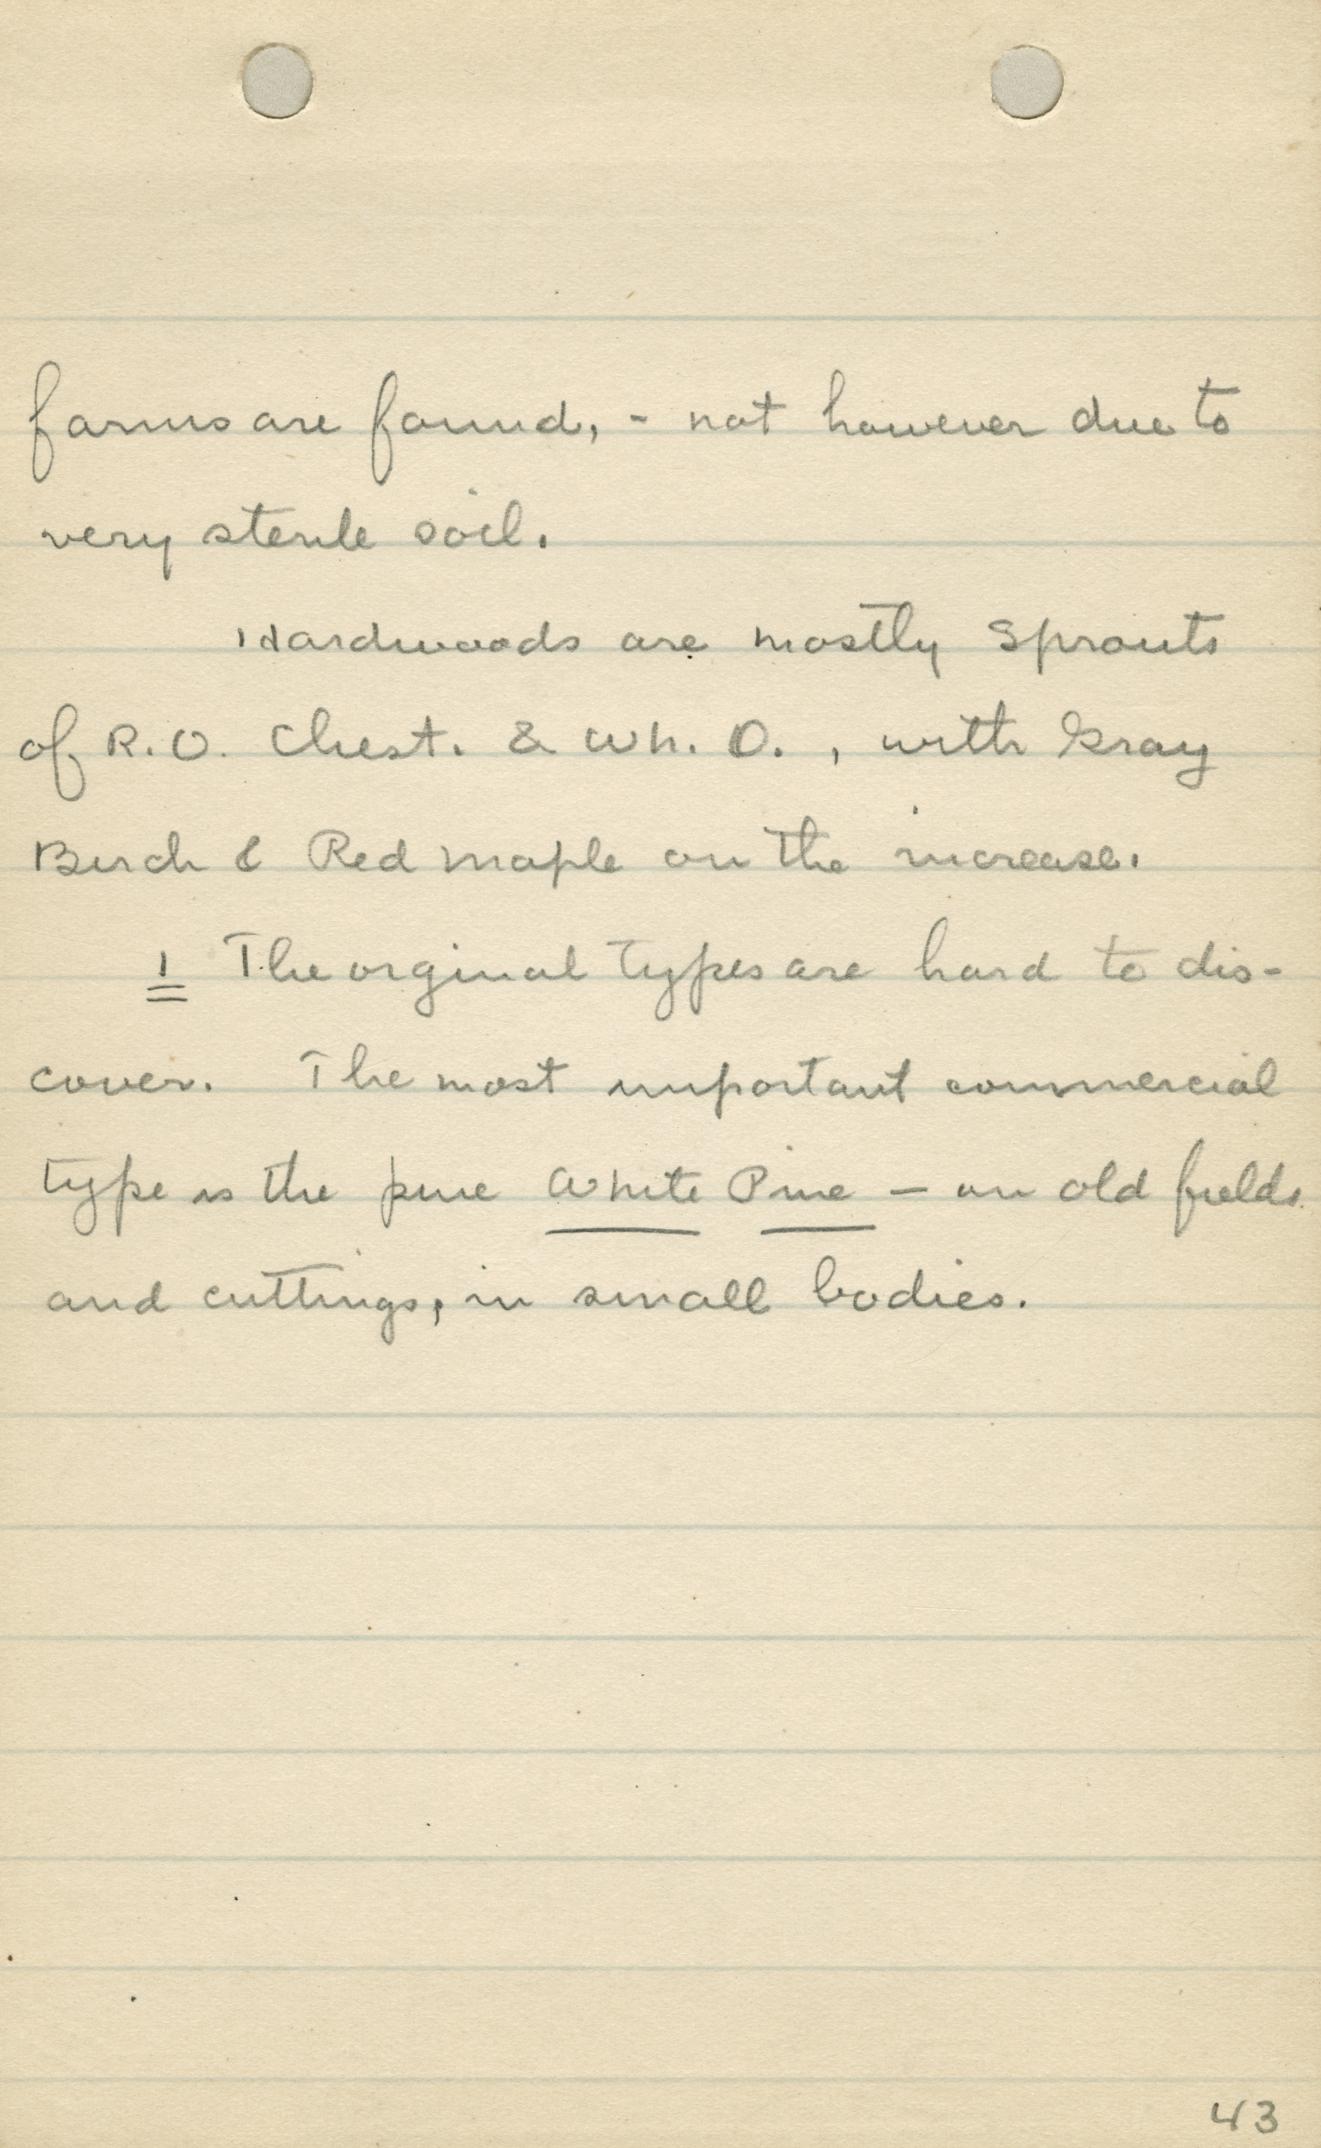 farms are found, - not however due to
very sterile soil.
Hardwoods are mostly Sprouts
of R.O. Chest. & Wh. O. , with Gray
Birch & Red Maple on the increase.
1 The orginal types are hard to dis-
cover. The most important commercial
type is the pure White Pine - on old fields
and cuttings, in small bodies.
43